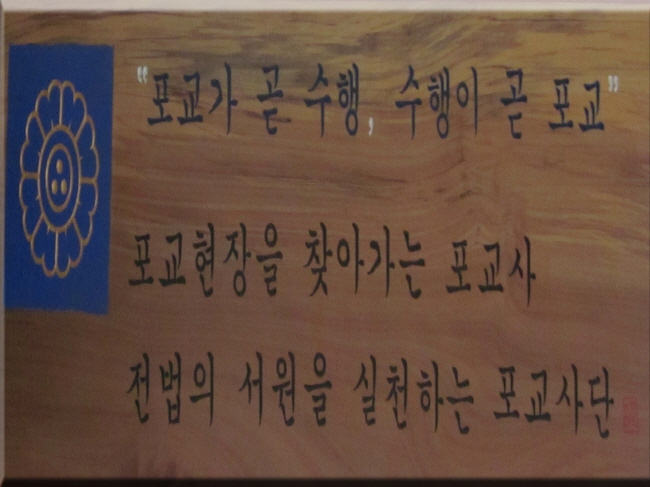 “포교가 곧 수행, 수행이 곧 포교”
포교현장을 찾아가는 포교사
전법의 서원을 실천하는 포교사단